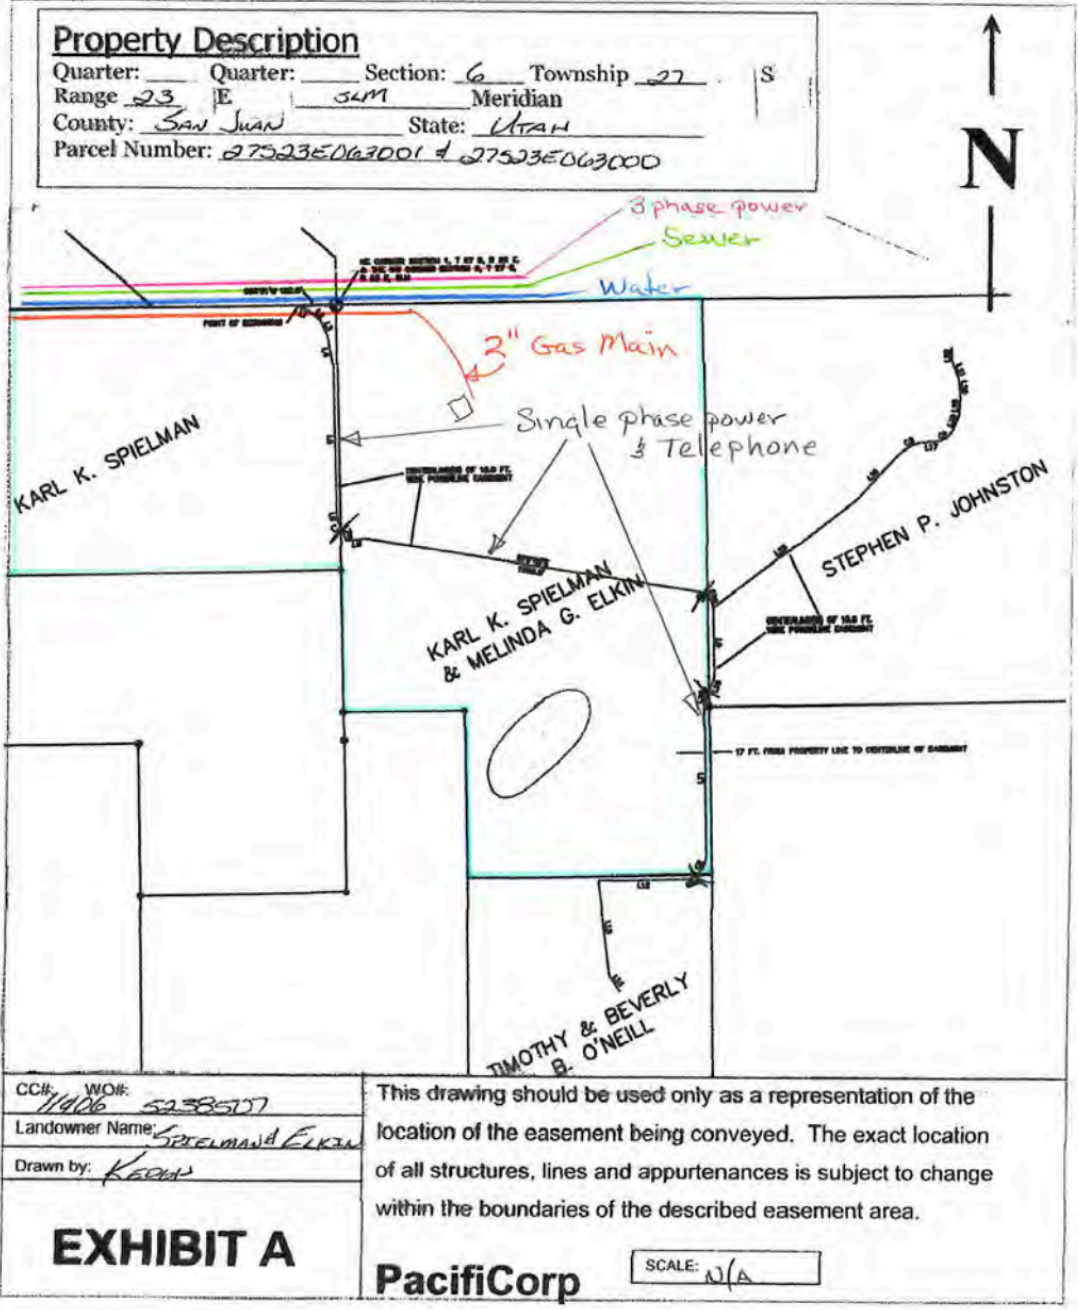 Property Description
Quarter: Quarter: Section: 6 Township 27 S
Range 23 E SLM Meridian
County: SAN JUAN State: UTAH
Parcel Number: 27S23E063001 & 27S23E063000
N
3 phase power
Sewer
Water
POINT OF BEGINNING
2" Gas Main
Single phase power
& Telephone
KARL K. SPIELMAN
CENTERLINES OF 10.0 FT.
WIDE POWERLINE EASEMENT
STEPHEN P. JOHNSTON
KARL K. SPIELMAN
& MELINDA G. ELKIN
CENTERLINES OF 10.0 FT.
WIDE POWERLINE EASEMENT
17 FT. FROM PROPERTY LINE TO CENTERLINE OF EASEMENT
TIMOTHY & BEVERLY
B. O'NEILL
CC#: WO#:
11406
Landowner Name: SPIELMAN & ELKIN
Drawn by:
EXHIBIT A
This drawing should be used only as a representation of the
location of the easement being conveyed. The exact location
of all structures, lines and appurtenances is subject to change
within the boundaries of the described easement area.
PacifiCorp
SCALE: N/A